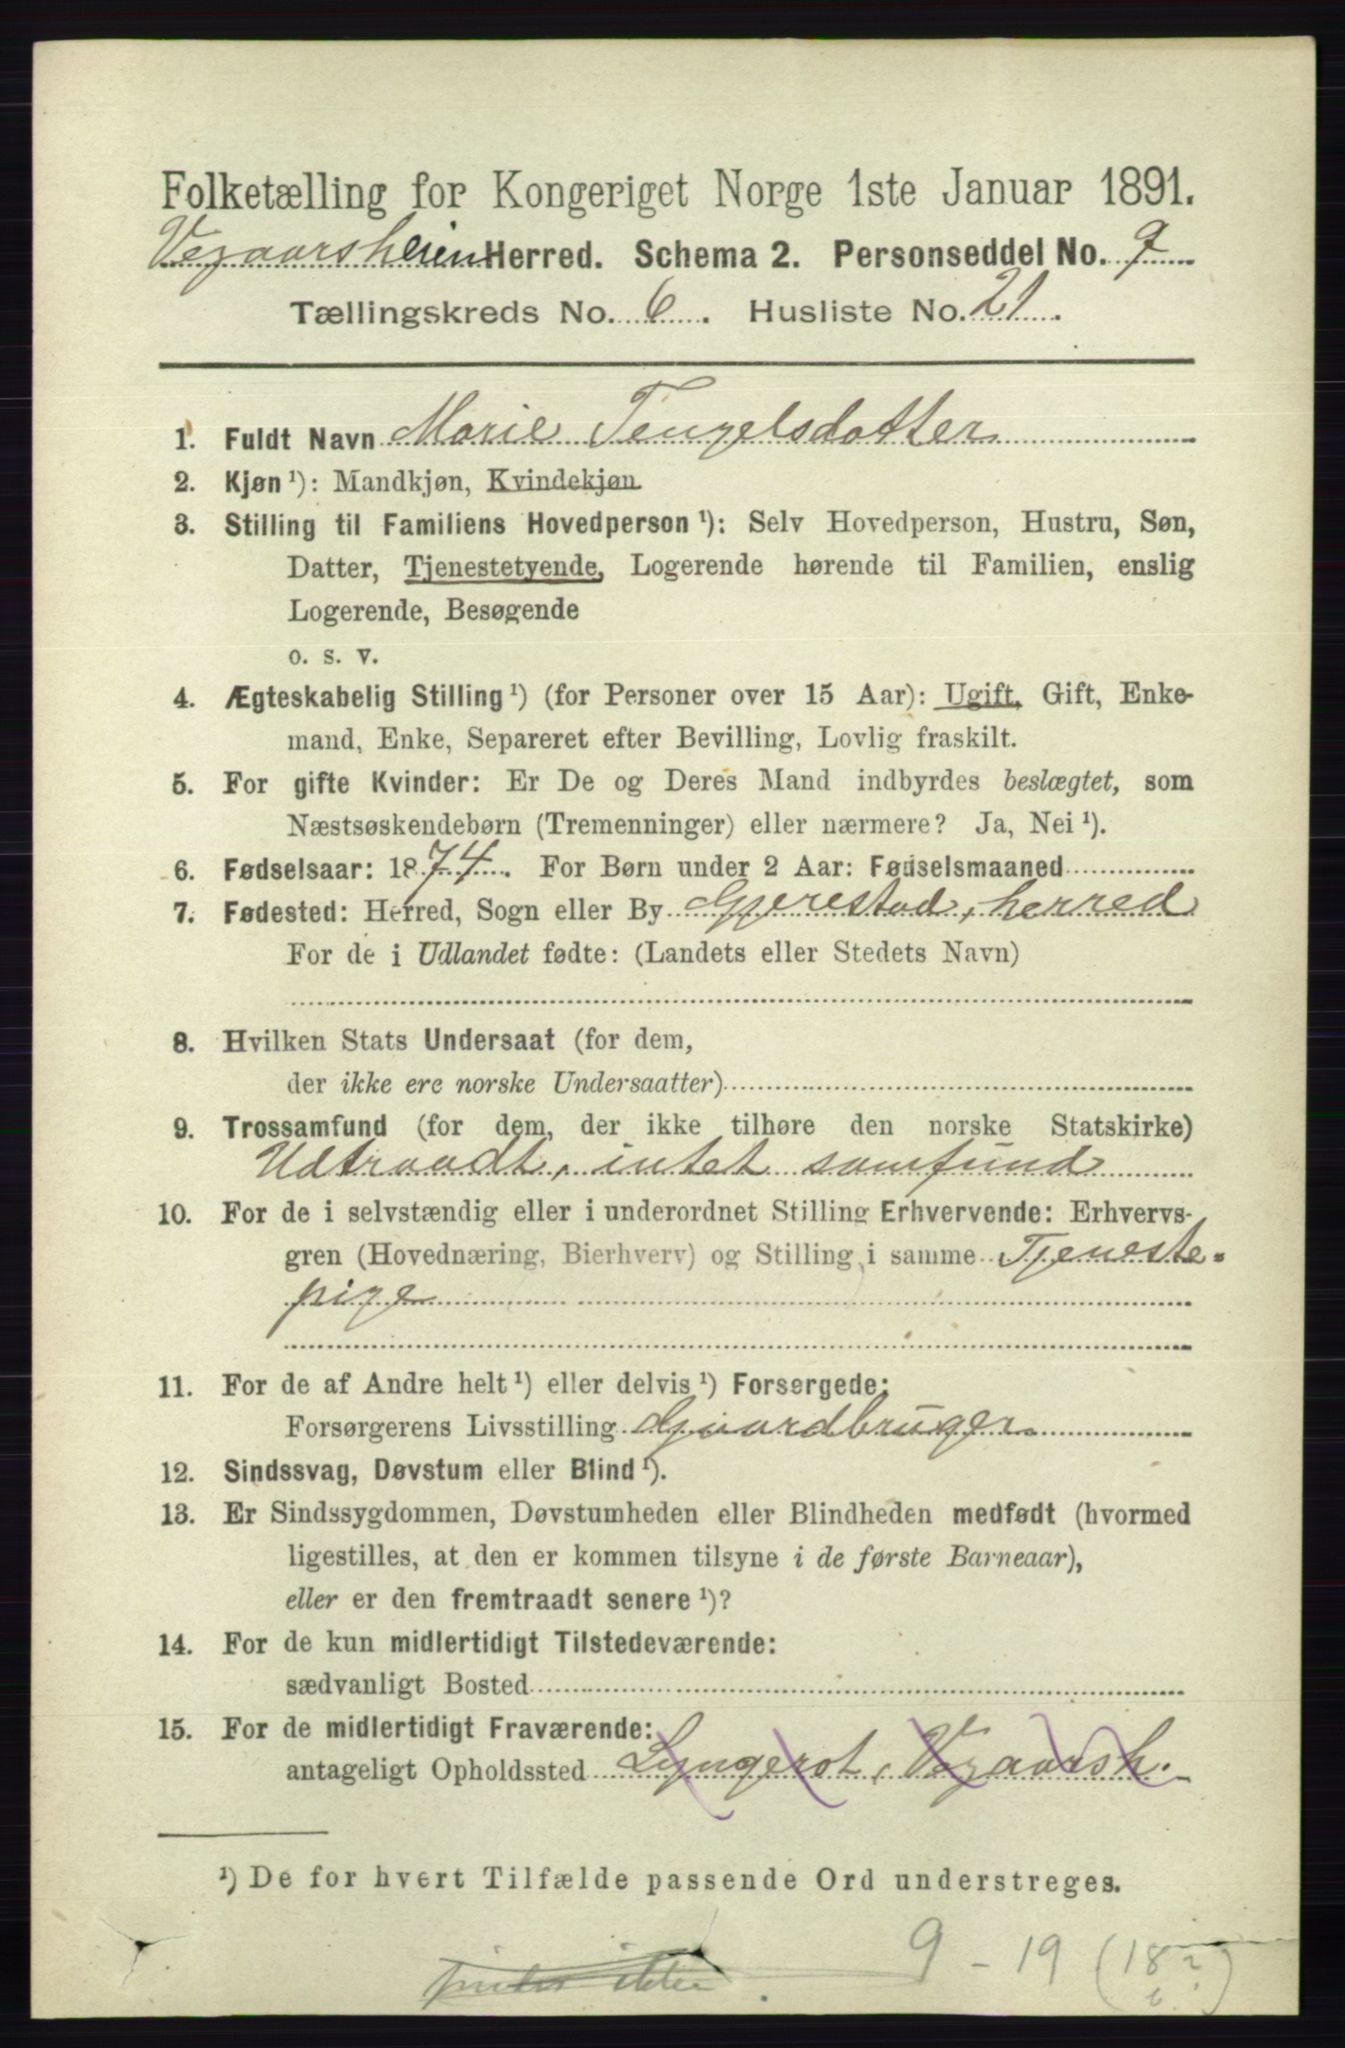 Folketælling for Kongeriget Norge 1ste Januar 1891.
Vegaarsheien Herred. Schema 2. Personseddel No. 9
Tællingskreds No. 6. Husliste No. 21.
1. Fuldt Navn Marie Tengelsdatter
2. Kjøn ¹): Mandkjøn, Kvindekjøn
3. Stilling til Familiens Hovedperson ¹): Selv Hovedperson, Hustru, Søn,
Datter, Tjenestetyende, Logerende hørende til Familien, enslig
Logerende, Besøgende
o. s. v.
4. Ægteskabelig Stilling ¹) (for Personer over 15 Aar): Ugift, Gift, Enke-
mand, Enke, Separeret efter Bevilling, Lovlig fraskilt.
5. For gifte Kvinder: Er De og Deres Mand indbyrdes beslægtet, som
Næstsøskendebørn (Tremenninger) eller nærmere? Ja, Nei ¹).
6. Fødselsaar: 1874. For Børn under 2 Aar: Fødselsmaaned
7. Fødested: Herred, Sogn eller By Gjerestad, herred
For de i Udlandet fødte: (Landets eller Stedets Navn)
8. Hvilken Stats Undersaat (for dem,
der ikke ere norske Undersaatter)
9. Trossamfund (for dem, der ikke tilhøre den norske Statskirke)
Udtraadt, intet samfund
10. For de i selvstændig eller i underordnet Stilling Erhvervende: Erhvervs-
gren (Hovednæring, Bierhverv) og Stilling i samme Tjeneste-
pige
11. For de af Andre helt ¹) eller delvis ¹) Forsørgede:
Forsørgerens Livsstilling Gaardbruger
12. Sindssvag, Døvstum eller Blind ¹).
13. Er Sindssygdommen, Døvstumheden eller Blindheden medfødt (hvormed
ligestilles, at den er kommen tilsyne i de første Barneaar),
eller er den fremtraadt senere ¹)?
14. For de kun midlertidigt Tilstedeværende:
sædvanligt Bosted
15. For de midlertidigt Fraværende:
antageligt Opholdssted Lyngerot, Vegaarsh.
¹) De for hvert Tilfælde passende Ord understreges.
9 - 19 (18 ?)
ikke